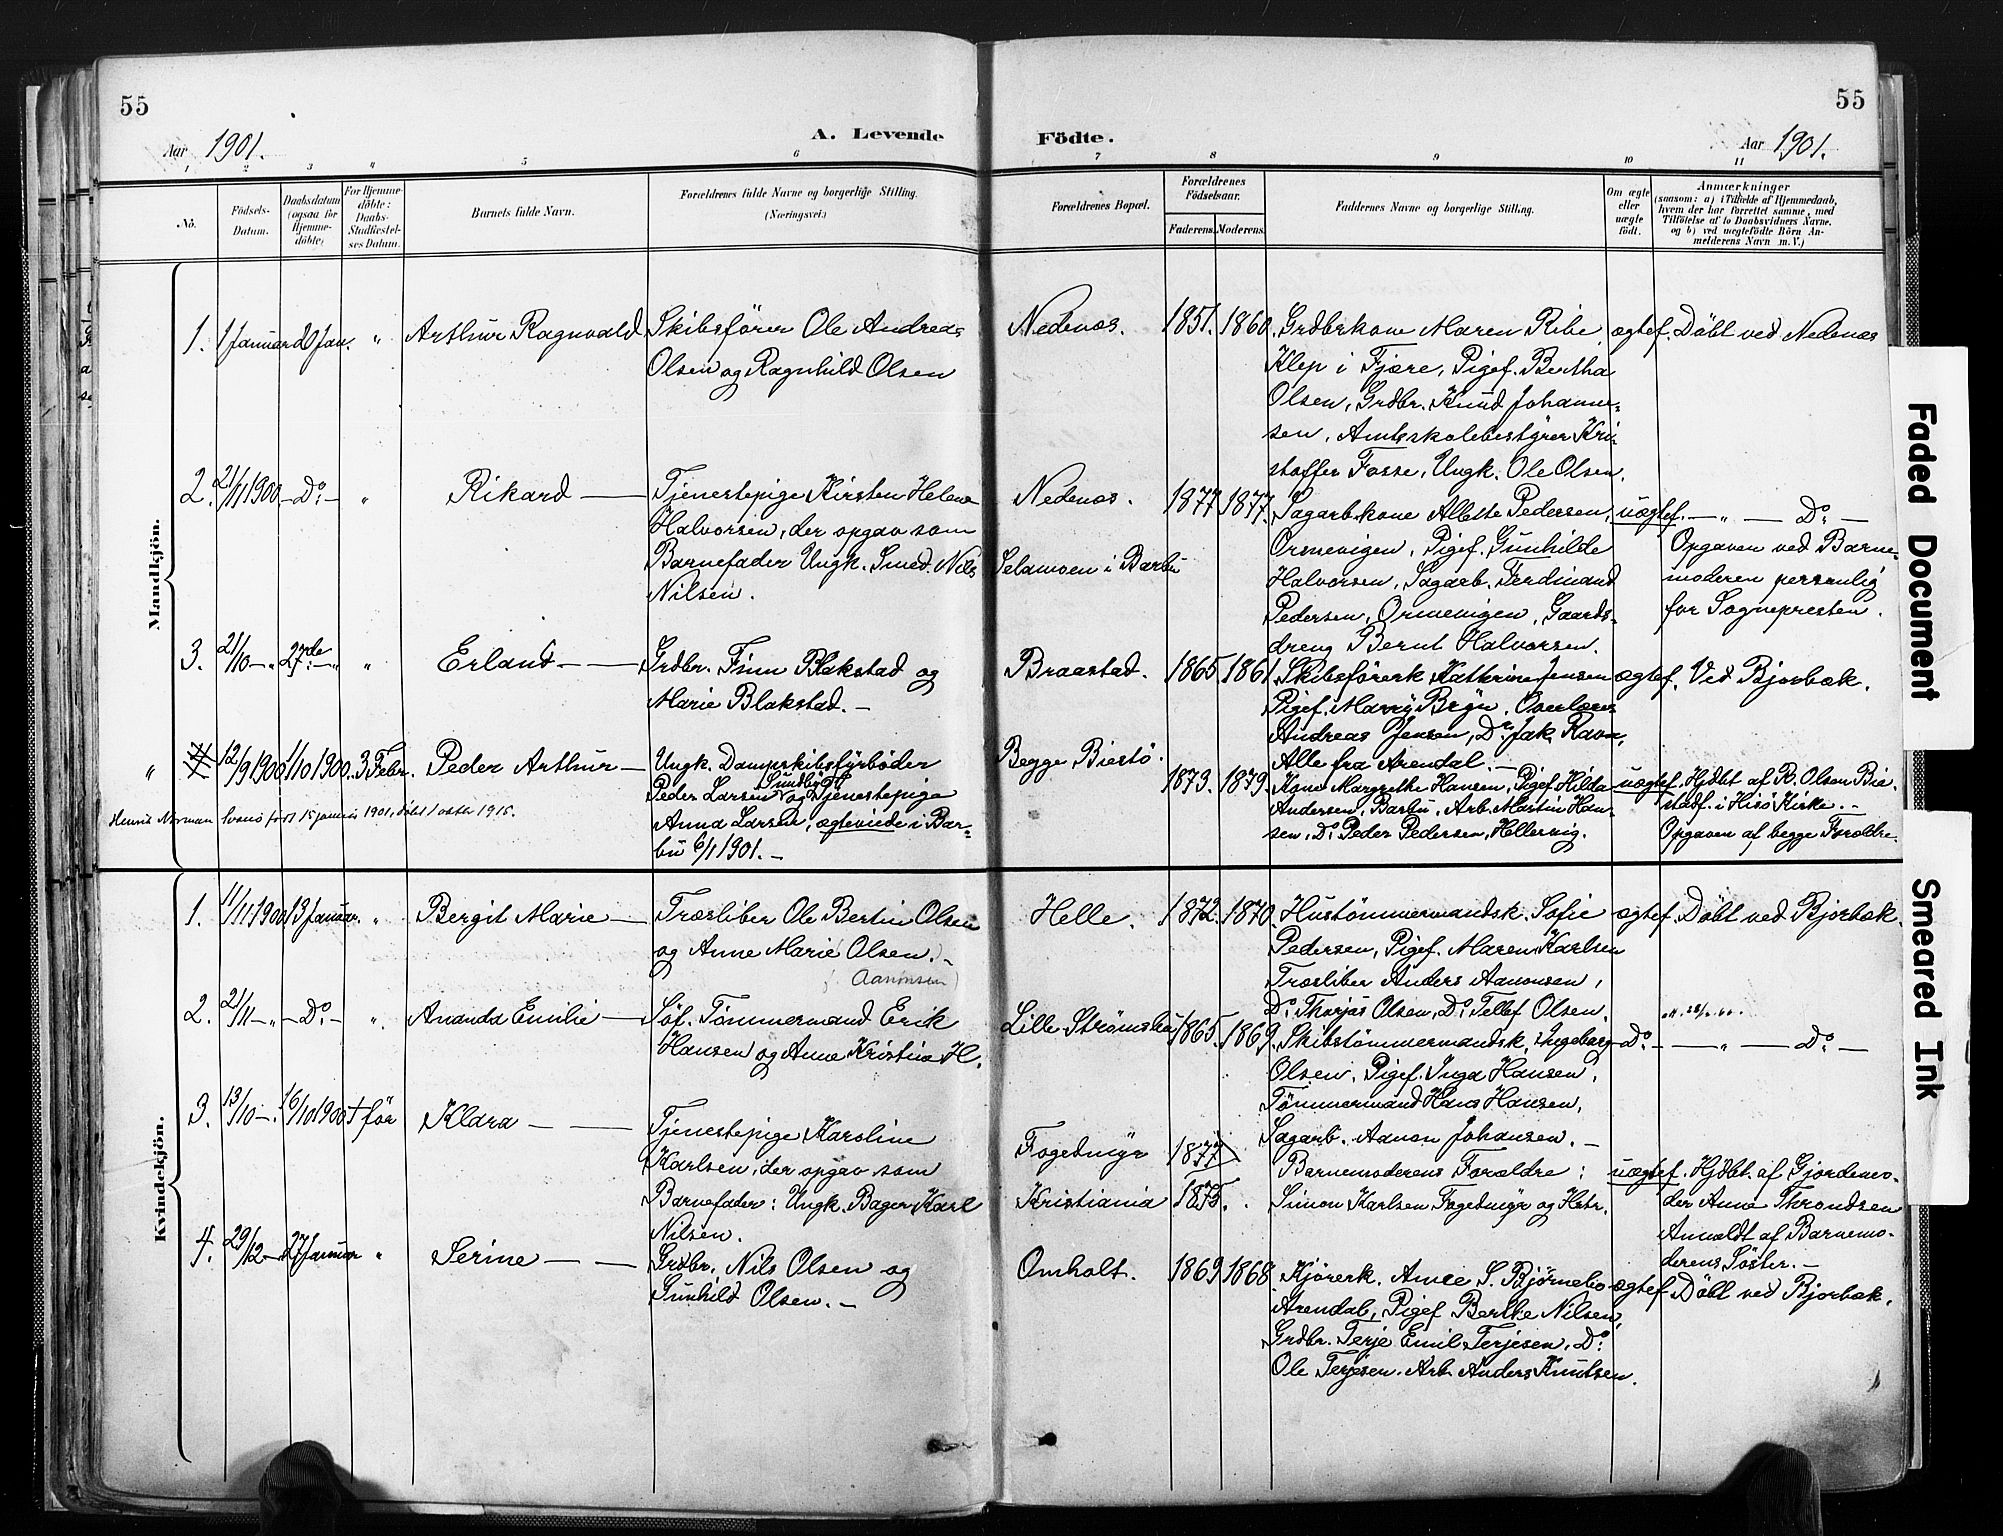 55
55
A. Levende
Födte.
Aar 1901.
Aar 1901.
1 2 3 4 5 6 7 8 9 10 11
No.
Födsels-
Datum.
Daabsdatum
(ogsaa for
Hjemme-
döbte)
For Hjemme-
döbte:
Daabs-
Stadfæstel-
ses Datum.
Barnets fulde Navn.
Forældrenes fulde Navne og borgerlige Stilling.
(Næringsvei.)
Forældrenes Bopæl.
Forældrenes
Födselsaar.
Faderens.
Moderens.
Faddernes Navne og borgerlige Stilling.
Om ægte
eller
uægte
födt.
Anmærkninger
(saasom: a) i Tilfælde af Hjemmedaab,
hvem der har forrettet samme, med
Tilföielse af to Daabsvidners Navne,
og b) ved uægtefödte Börn An-
melderens Navn m. V.)
Mandkjön.
1. 1 Januar 20 Jan. " Arthur Ragnvald
Skibsfører Ole Andreas
Olsen og Ragnhild Olsen
Nedenæs. 1851. 1860.
Grdbrkone Maren Ribe,
Klep i Fjære, Pigef. Bertha
Olsen, Grdbr. Knud Johanne-
sen, Amtskolebestyrer Kri-
stoffer Fosse, Ungk. Ole Olsen.
ægtef. Döbt ved Nedenæs
2. 21/11 1900. - Do - " Rikard
Tjenestepige Kirsten Helene
Halvorsen, der opgav som
Barnefader Ungk. Smed Nils
Nilsen.
Nedenæs.
Selamoen i Barbu
1877. 1877.
Sagarb.kone Allette Pedersen,
Ormevigen, Pigef. Gunhilde
Halvorsen, Sagarb. Ferdinand
Pedersen, Ormevigen, Gaards-
dreng Bernt Halvorsen.
uægtef. - " - Do -
Opgaven ved Barne-
moderen personlig
for Sognepresten.
3. 21/10 - " 27de - " " Erland
Grdbr. Finn Blakstad og
Marie Blakstad. -
Braastad. 1865. 1861.
Skibsførerk. Kathrine Jensen
Pigef. Marry Bryn, Overlærer
Andreas Jensen, Do Jak. Ravn,
Alle fra Arendal. -
ægtef. Ved Bjorbæk.
" 4 12/9 1900. 1/10 1900. 3 Febr. Peder Arthur
Ungk. Dampskibsfyrbøder
Peder Larsen og Tjenestepige
Anna Larsen, ægteviede i Bar-
bu 6/1 1901. -
Begge Biestö.
1873. 1879.
Kone Margrethe Hansen, Pigef. Hilda
Andersen, Barbu, Arb. Martin Han-
sen, Do Peder Pedersen, Hellervig.
uægtef. Hjdbt af R. Olsen Bie.
stadf. i Hisö Kirke. -
Opgaven af begge Forældre.
Henrik Norman født 15 januar 1901, døbt 1 oktbr 1915.
Kvindekjön.
1. 11/11 1900 13 Januar. " Bergit Marie
Træsliber Ole Bertin Olsen
og Anne Marie Olsen. -
(Aanonsen)
Helle. 1872. 1870.
Hustømmermandsk. Sofie
Pedersen, Pigef. Maren Karlsen
Træsliber Anders Aanonsen,
Do Thorjas Olsen, Do Tellef Olsen.
ægtef. Döbt ved Bjorbæk.
2. 21/11 - " - Do - " Ananda Emilie
Söf. Tömmermand Erik
Hansen og Anne Kristine H.
Lille Strömsbu 1865. 1869.
Skibstömmermandsk. Ingeborg
Olsen, Pigef. Inga Hansen,
Tömmermand Hans Hansen,
Sagarb. Aanon Johansen. -
Do - - " - Do -
3. 13/10 -. 16/10 1900 † för Klara
Tjenestepige Karoline
Karlsen, der opgav som
Barnefader: Ungk. Bager Karl
Nilsen.
Fogedmyr 1877
Kristiania 1875.
Barnemoderens Forældre:
Simon Karlsen Fogedmyr og Hstr.
uægtef. Hjdbt. af Gjordemo-
der Anne Throndsen
Anmeldt af Barnemo-
derens Söster. -
4. 29/12 - 27 Januar " Serine
Grdbr. Nils Olsen og
Gunhild Olsen. -
Omholt. 1869 1868.
Kjörerk. Anne S. Björnebo
Arendal, Pigef Berthe Nilsen,
Grdbr. Terje Emil Terjesen, Do
Ole Terjesen. Arb. Anders Knutsen.
ægtef. Döbt ved Bjorbæk.
Faded Document
Smeared Ink